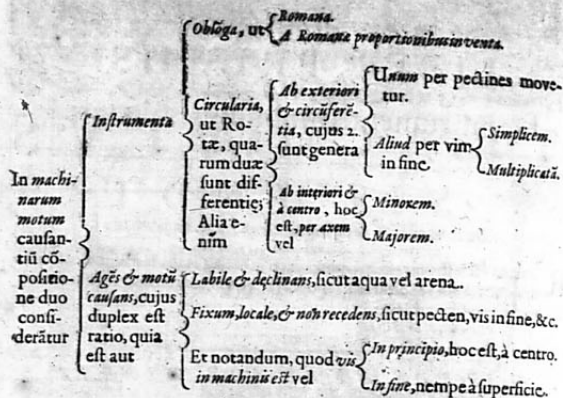 In machi-
narum
motum
causan-
tiū cō-
positio-
ne duo
consi-
derātur
Instrumenta
Oblōga, ut
Romana.
A Romanæ proportionibus inventa.
Circularia,
ut Ro-
tæ, qua-
rum duæ
sunt dif-
ferentię;
Alia e-
nim
Ab exteriori
& circūferē-
tia, cujus 2.
sunt genera
Unum per pectines move-
tur.
Aliud per vim
in fine
Simplicem.
Multiplicatā.
Ab interiori &
à centro, hoc
est, per axem
vel
Minorem.
Majorem.
Agēs & motū
causans, cujus
duplex est
ratio, quia
est aut
Labile & dęclinans, sicut aqua vel arena.
Fixum, locale, & non recedens, sicut pecten, vis in fine, &c.
Et notandum, quod vis
in machinis est vel
In principio, hoc est, à centro.
In fine, nempe à superficie.